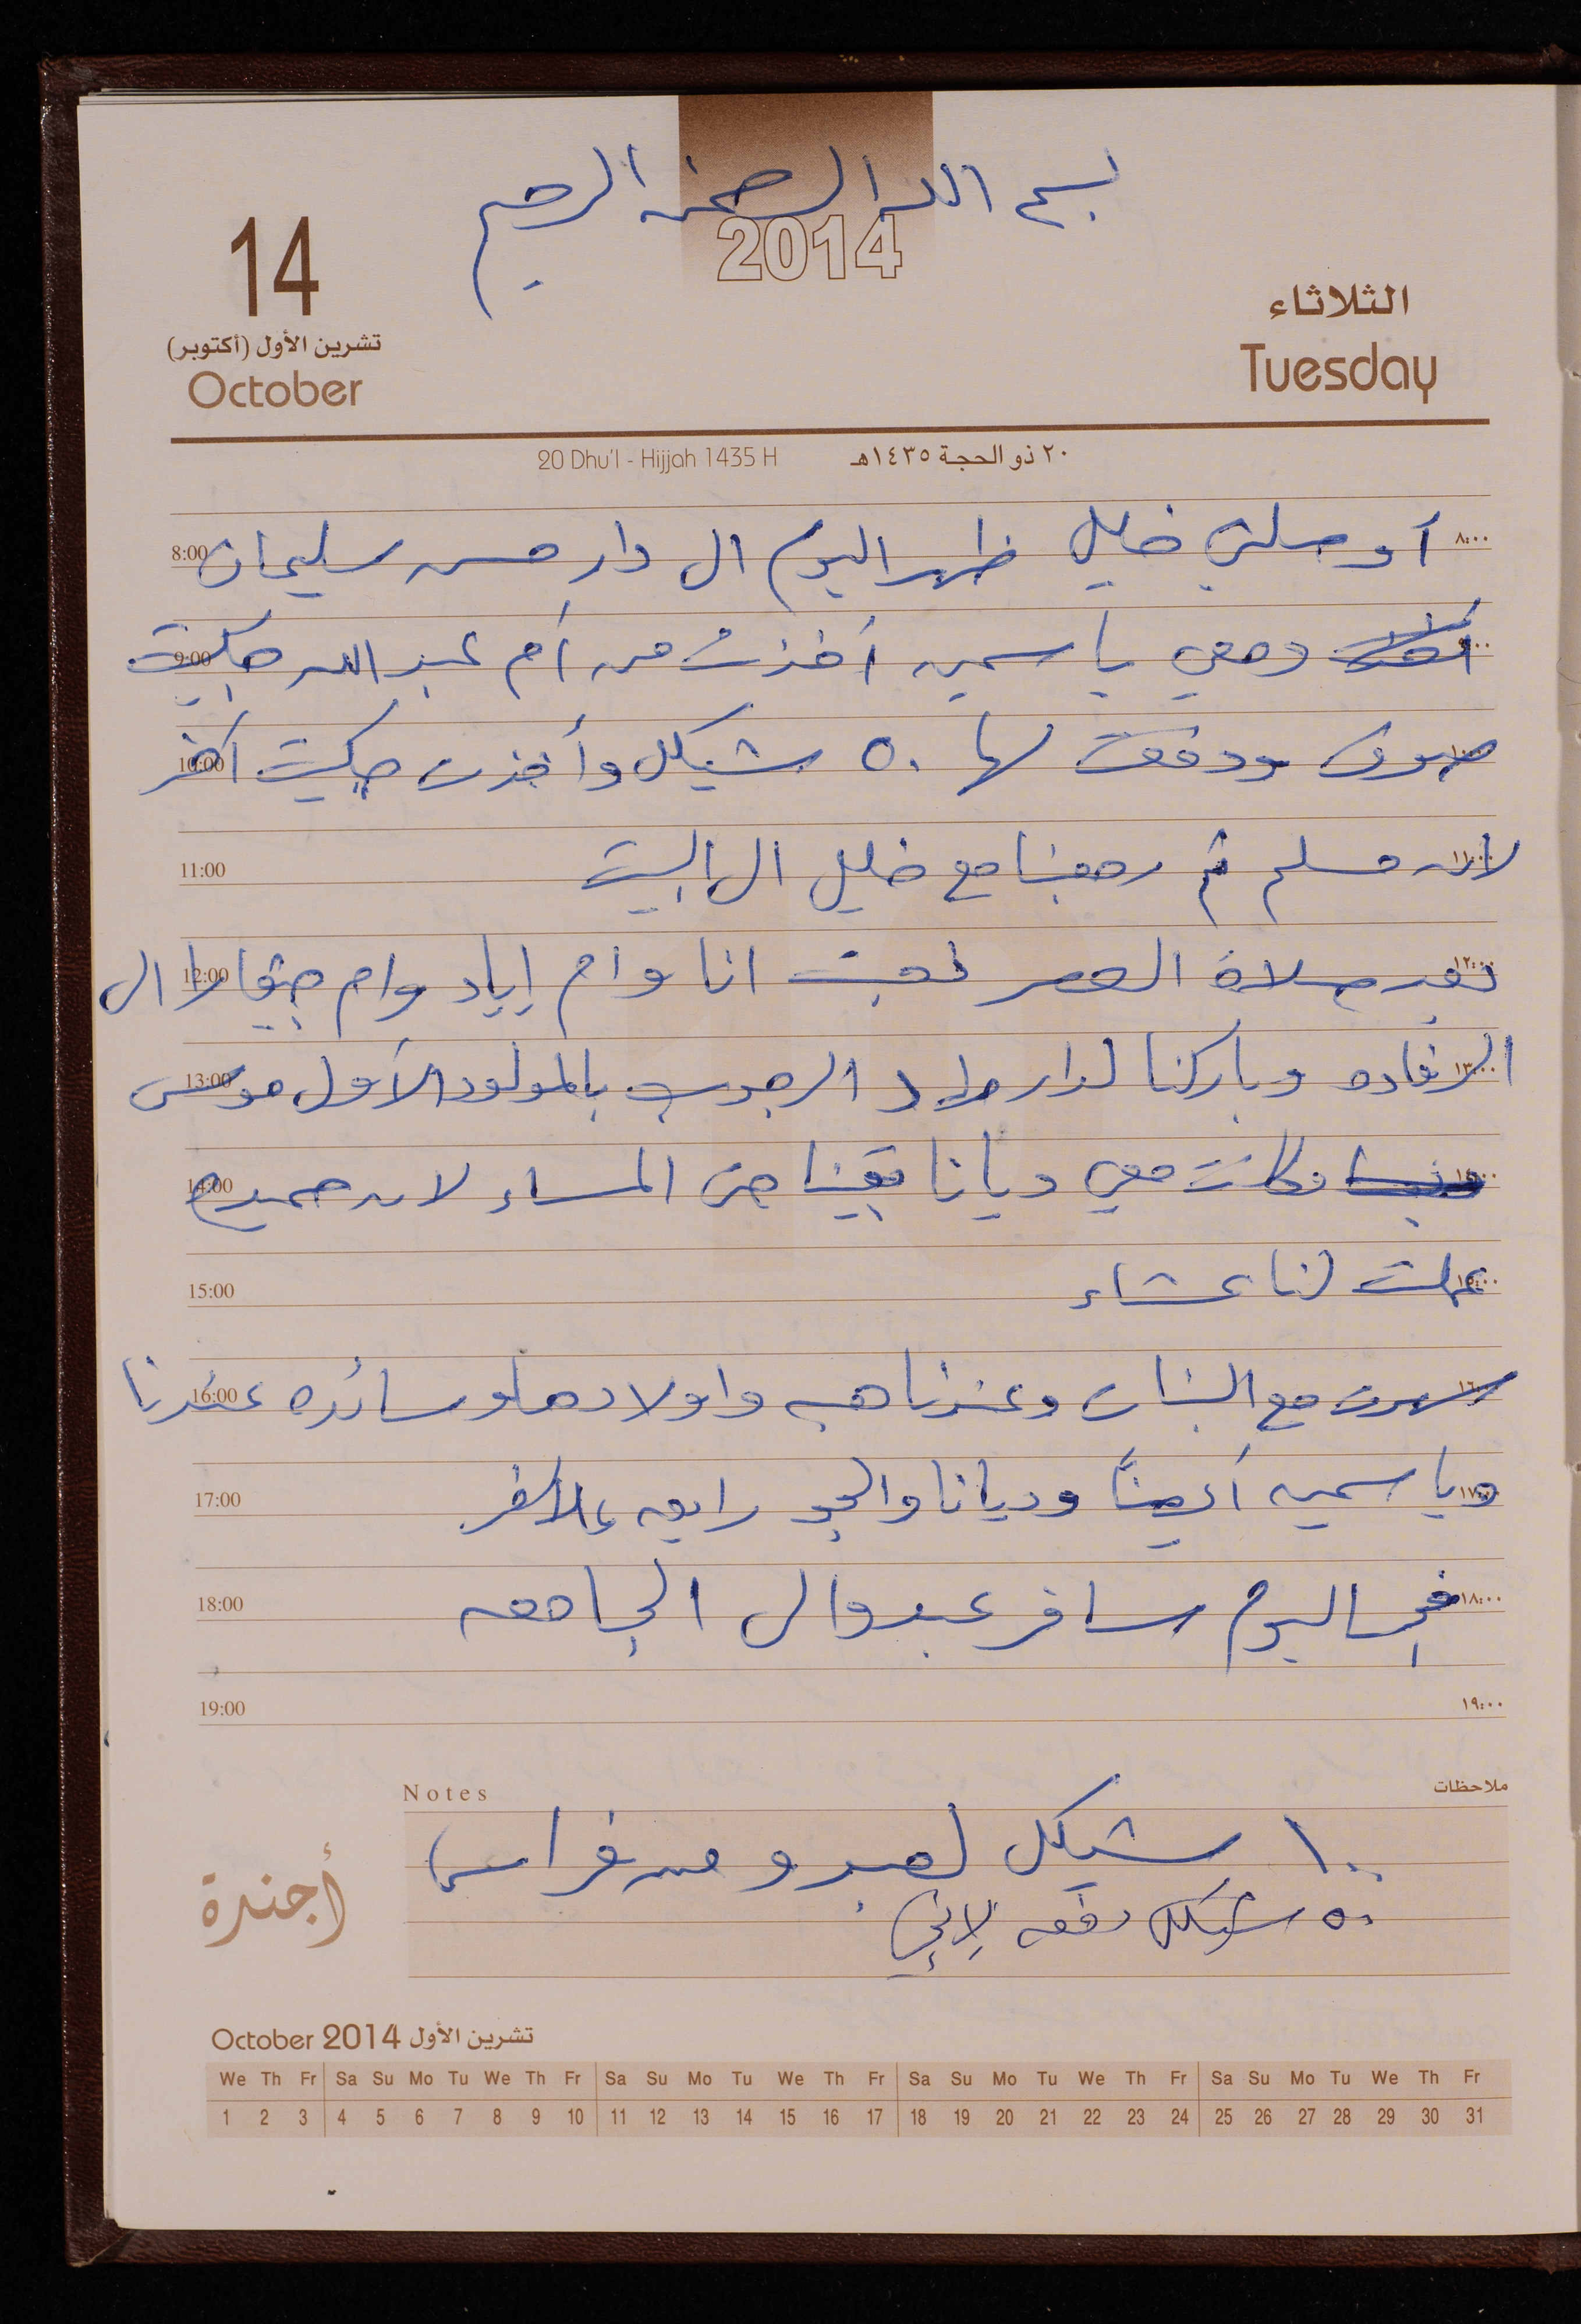 بسم الله الرحمن الرحيم
2014
14
تشرين الأول (أكتوبر)
October
الثلاثاء
Tuesday
20 Dhu'l - Hijjah 1435 H ٢٠ ذو الحجة ١٤٣٥هـ
٨:٠٠ أوصلني خليل ظهر اليوم الى دار حسن سليمان 8:00
ومعي ياسمين أخذت من أم عبد الله جكيت 9:00
١٠:٠٠ صوف ودفعت لها ٥٠ شيكل وأخذت جكيت أخر 10:00
١١:٠٠ لابن مسلم ثم رجعنا مع خليل الى البيت 11:00
١٢:٠٠ بعد صلاة العصر ذهبت انا وام إياد وام جيفارا الى 12:00
١٣:٠٠ الرفاده وباركنا لدار الرجوب بالمولود الأول موسى 13:00
وكانت معي ديانا بقينا حتى المساء لان حمدہ 14:00
١٥:٠٠ عملت لنا عشاء 15:00
١٦:٠٠ سهرت مع البنات وعندنا هبه واولادها وسائده عندنا 16:00
١٧:٠٠ وياسمين أيضاً وديانا والجو رايق علاخر 17:00
١٨:٠٠ فجر اليوم سافر عبد والى الجامعه 18:00
١٩:٠٠ 19:00
Notes ملاحظات
١٠٠ شيكل لعبدو من فراس
أجندة
٥٠ شيكل دفعه لابني
October 2014 تشرين الأول
We Th Fr Sa Su Mo Tu We Th Fr Sa Su Mo Tu We Th Fr Sa Su Mo Tu We Th Fr Sa Su Mo Tu We Th Fr
1 2 3 4 5 6 7 8 9 10 11 12 13 14 15 16 17 18 19 20 21 22 23 24 25 26 27 28 29 30 31